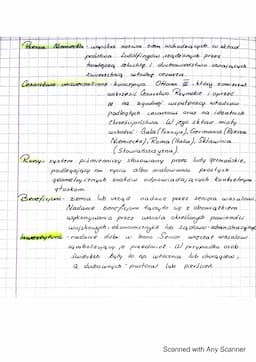 Rzesza Niemiecka - wspólna nazwa ziem wchodzących w skład
państwa Ludolfingów rządzonych przez
tamtejszą szlachtę i duchowieństwo uznających
zwierzchnią władzę cesarza.
Cesarstwo uniwersalne - koncepcja Ottona III, który zamierzał
wskrzesić Cesarstwo Rzymskie i oprzeć
je na zgodnej współpracy władców
podległych cesarzowi oraz na ideałach
chrześcijaństwa. W jego skład miały
wchodzić: Galia (Francja), Germania (Rzesza
Niemiecka), Roma (Italia), Sklawinia
(Słowiańszczyzna).
Runy - system piśmienniczy stosowany przez ludy germańskie,
podlegający na ryciu albo malowaniu prostych
geometrycznych znaków odpowiadających konkretnym
głoskom.
Beneficjum - ziemia lub urząd nadane przez seniora wasalowi.
Nadanie beneficjum łączyło się z obowiązkiem
wykonywania przez wasala określonych powinności
wojskowych, ekonomicznych lub sądowo-administracyjnych
Inwestytura - nadanie dóbr w lenno. Senior wręczał wasalowi
symbolizujący je przedmiot. W przypadku osób
świeckich były to np. włócznia lub chorągiew,
a duchownych - pastorał lub pierścień.
Scanned with Any Scanner